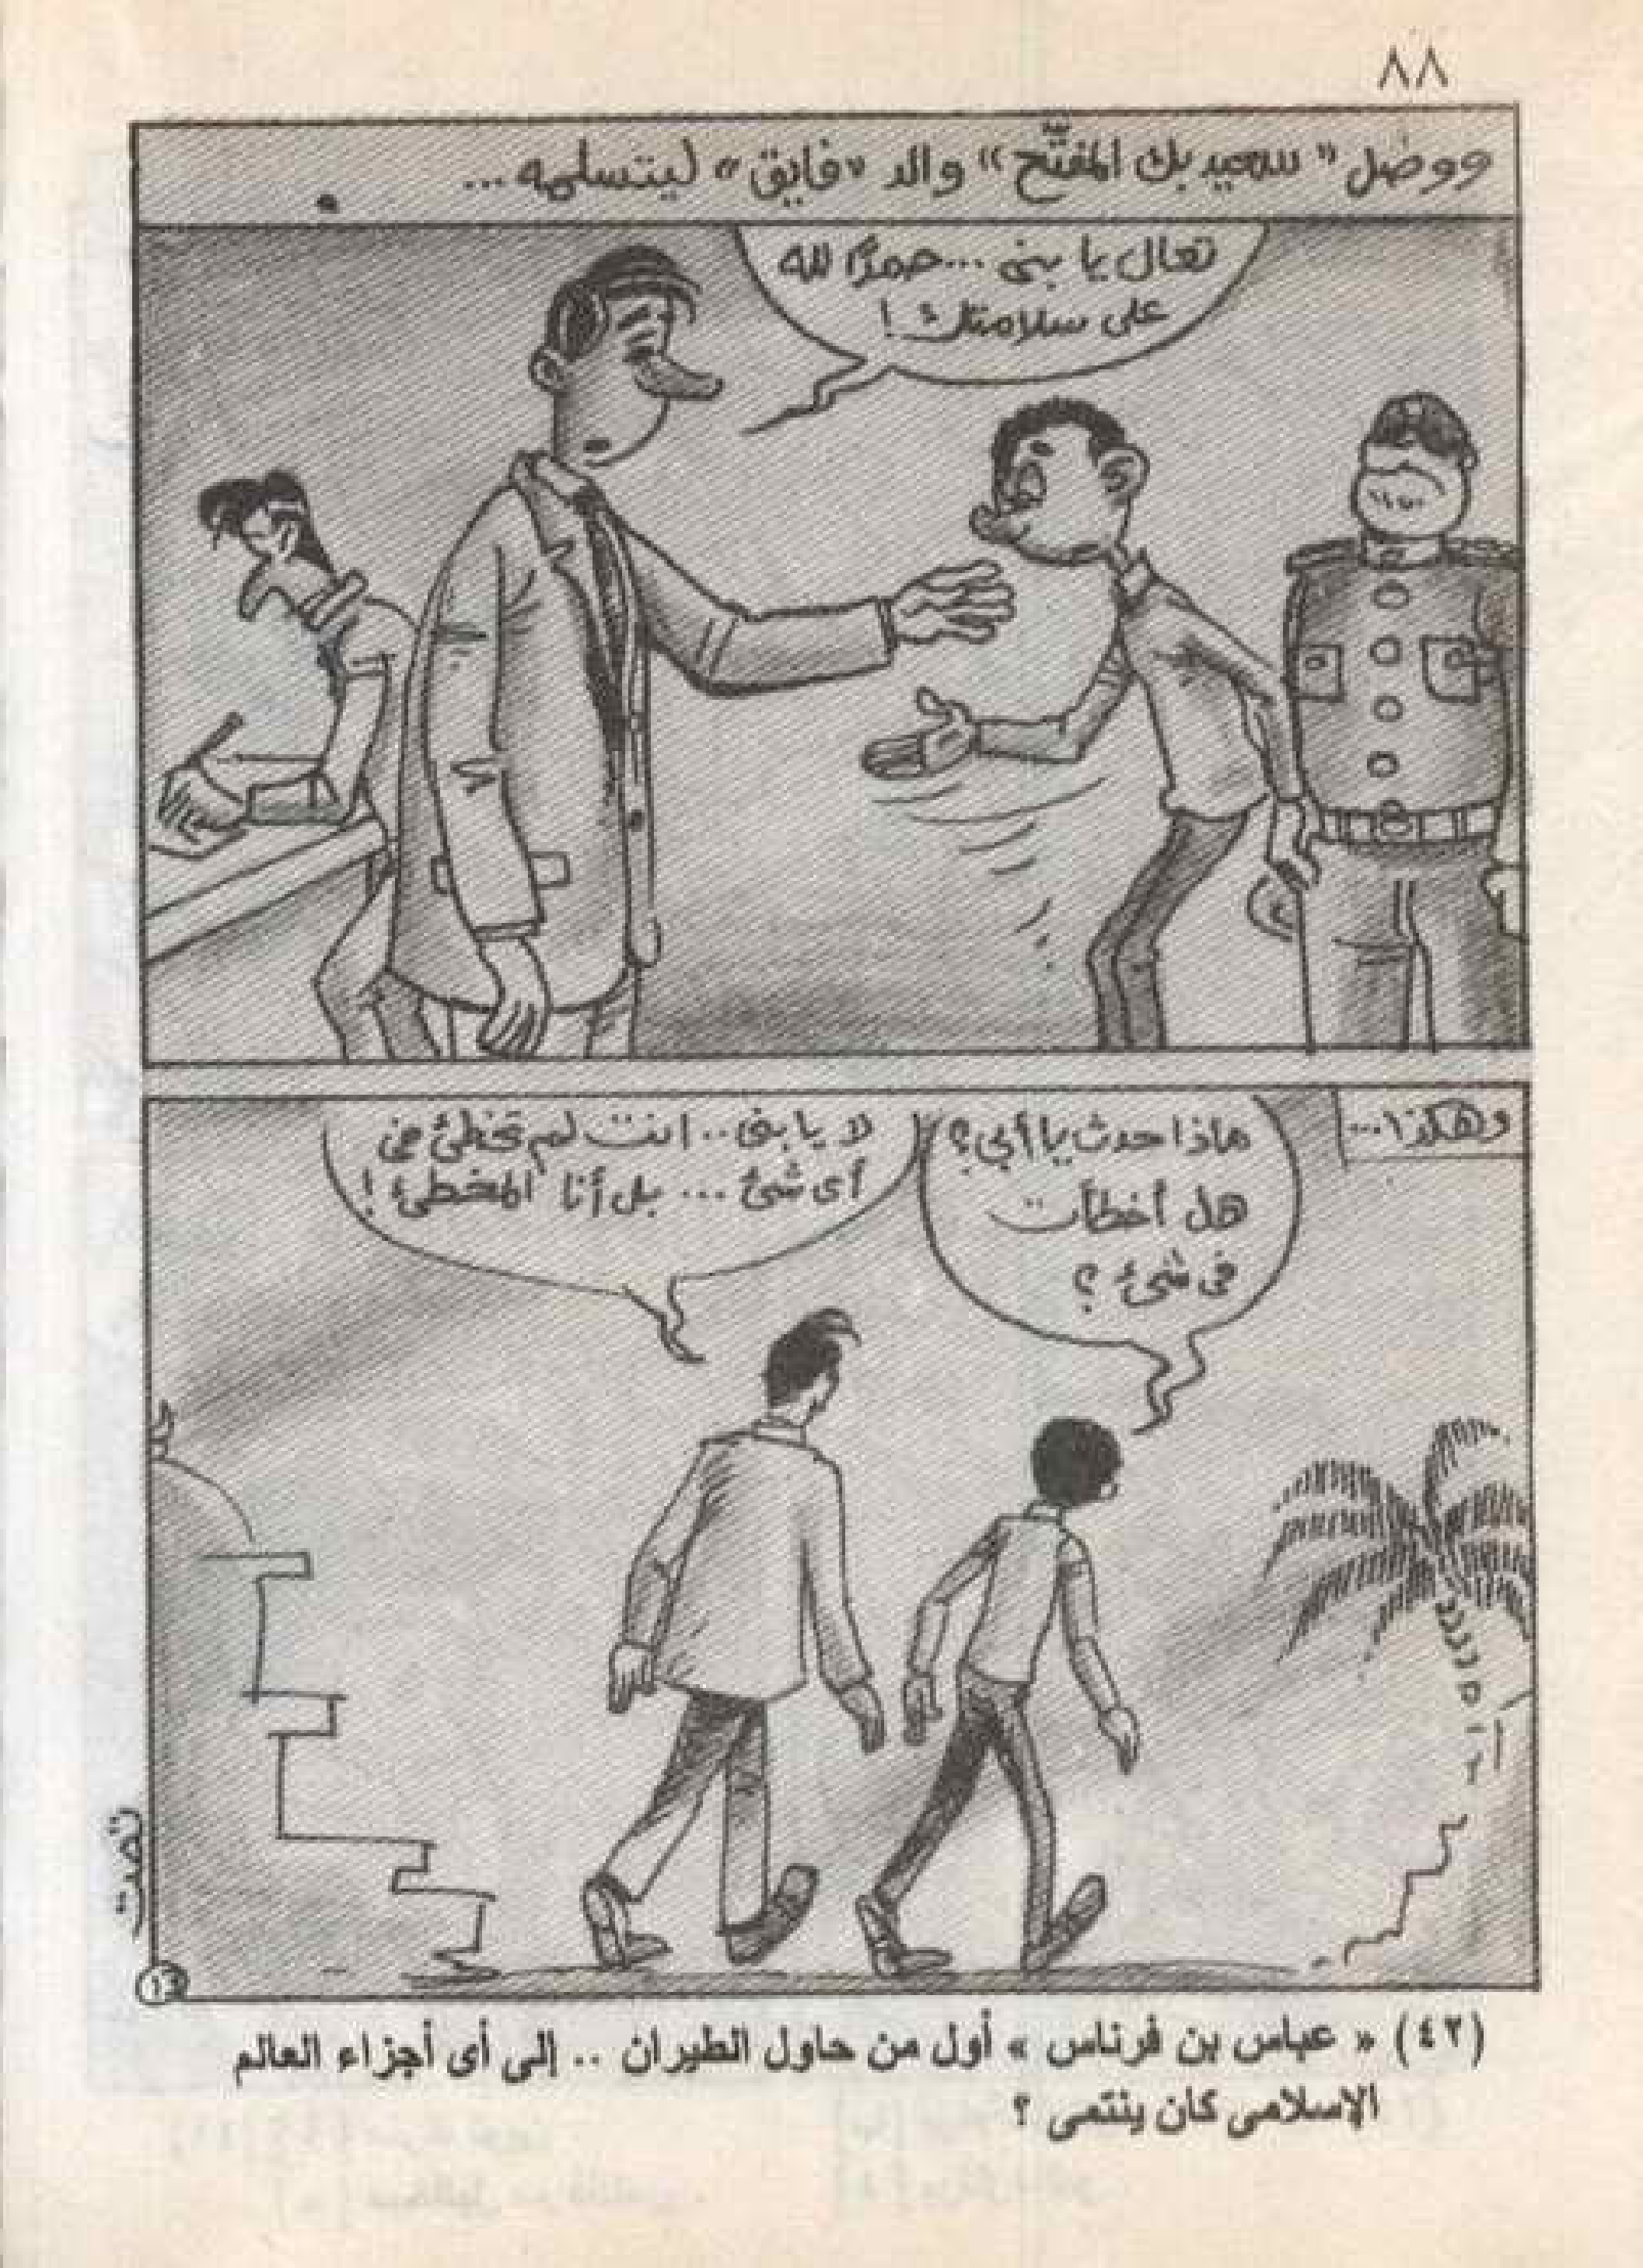 ٨٨
ووصل "سعيد بك المفتّح" والد "فايق" ليتسلمه...
تعال يا بنى... حمدًا لله
على سلامتك!
وهكذا...
ماذا حدث يا أبي؟
هل أخطأت
فى شئ؟
لا يا بنى.. انت لم تخطئ فى
أى شئ... بل أنا المخطئ!
(٤٢) « عباس بن فرناس » أول من حاول الطيران .. إلى أى أجزاء العالم
الإسلامى كان ينتمى ؟